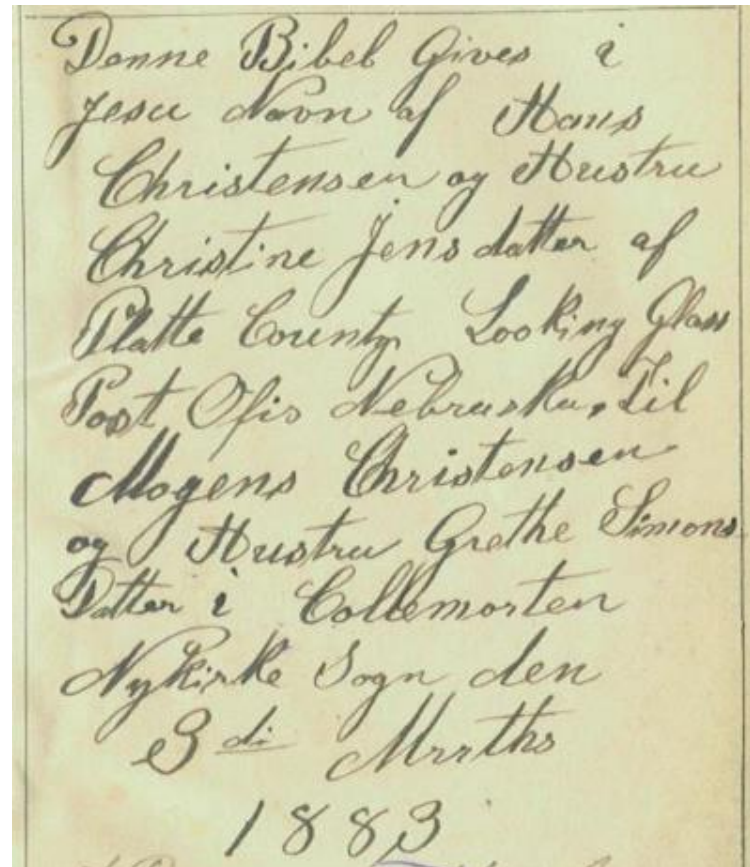 Denne Bibel Gives i
Jesu Navn af Hans
Christensen og Hustru
Christine Jens datter af
Platte County Looking Glass
Post Ofis Nebraska, Til
Mogens Christensen
og Hustru Grethe Simons
Datter i Collemorten
Nykirke Sogn den
3 di
1883